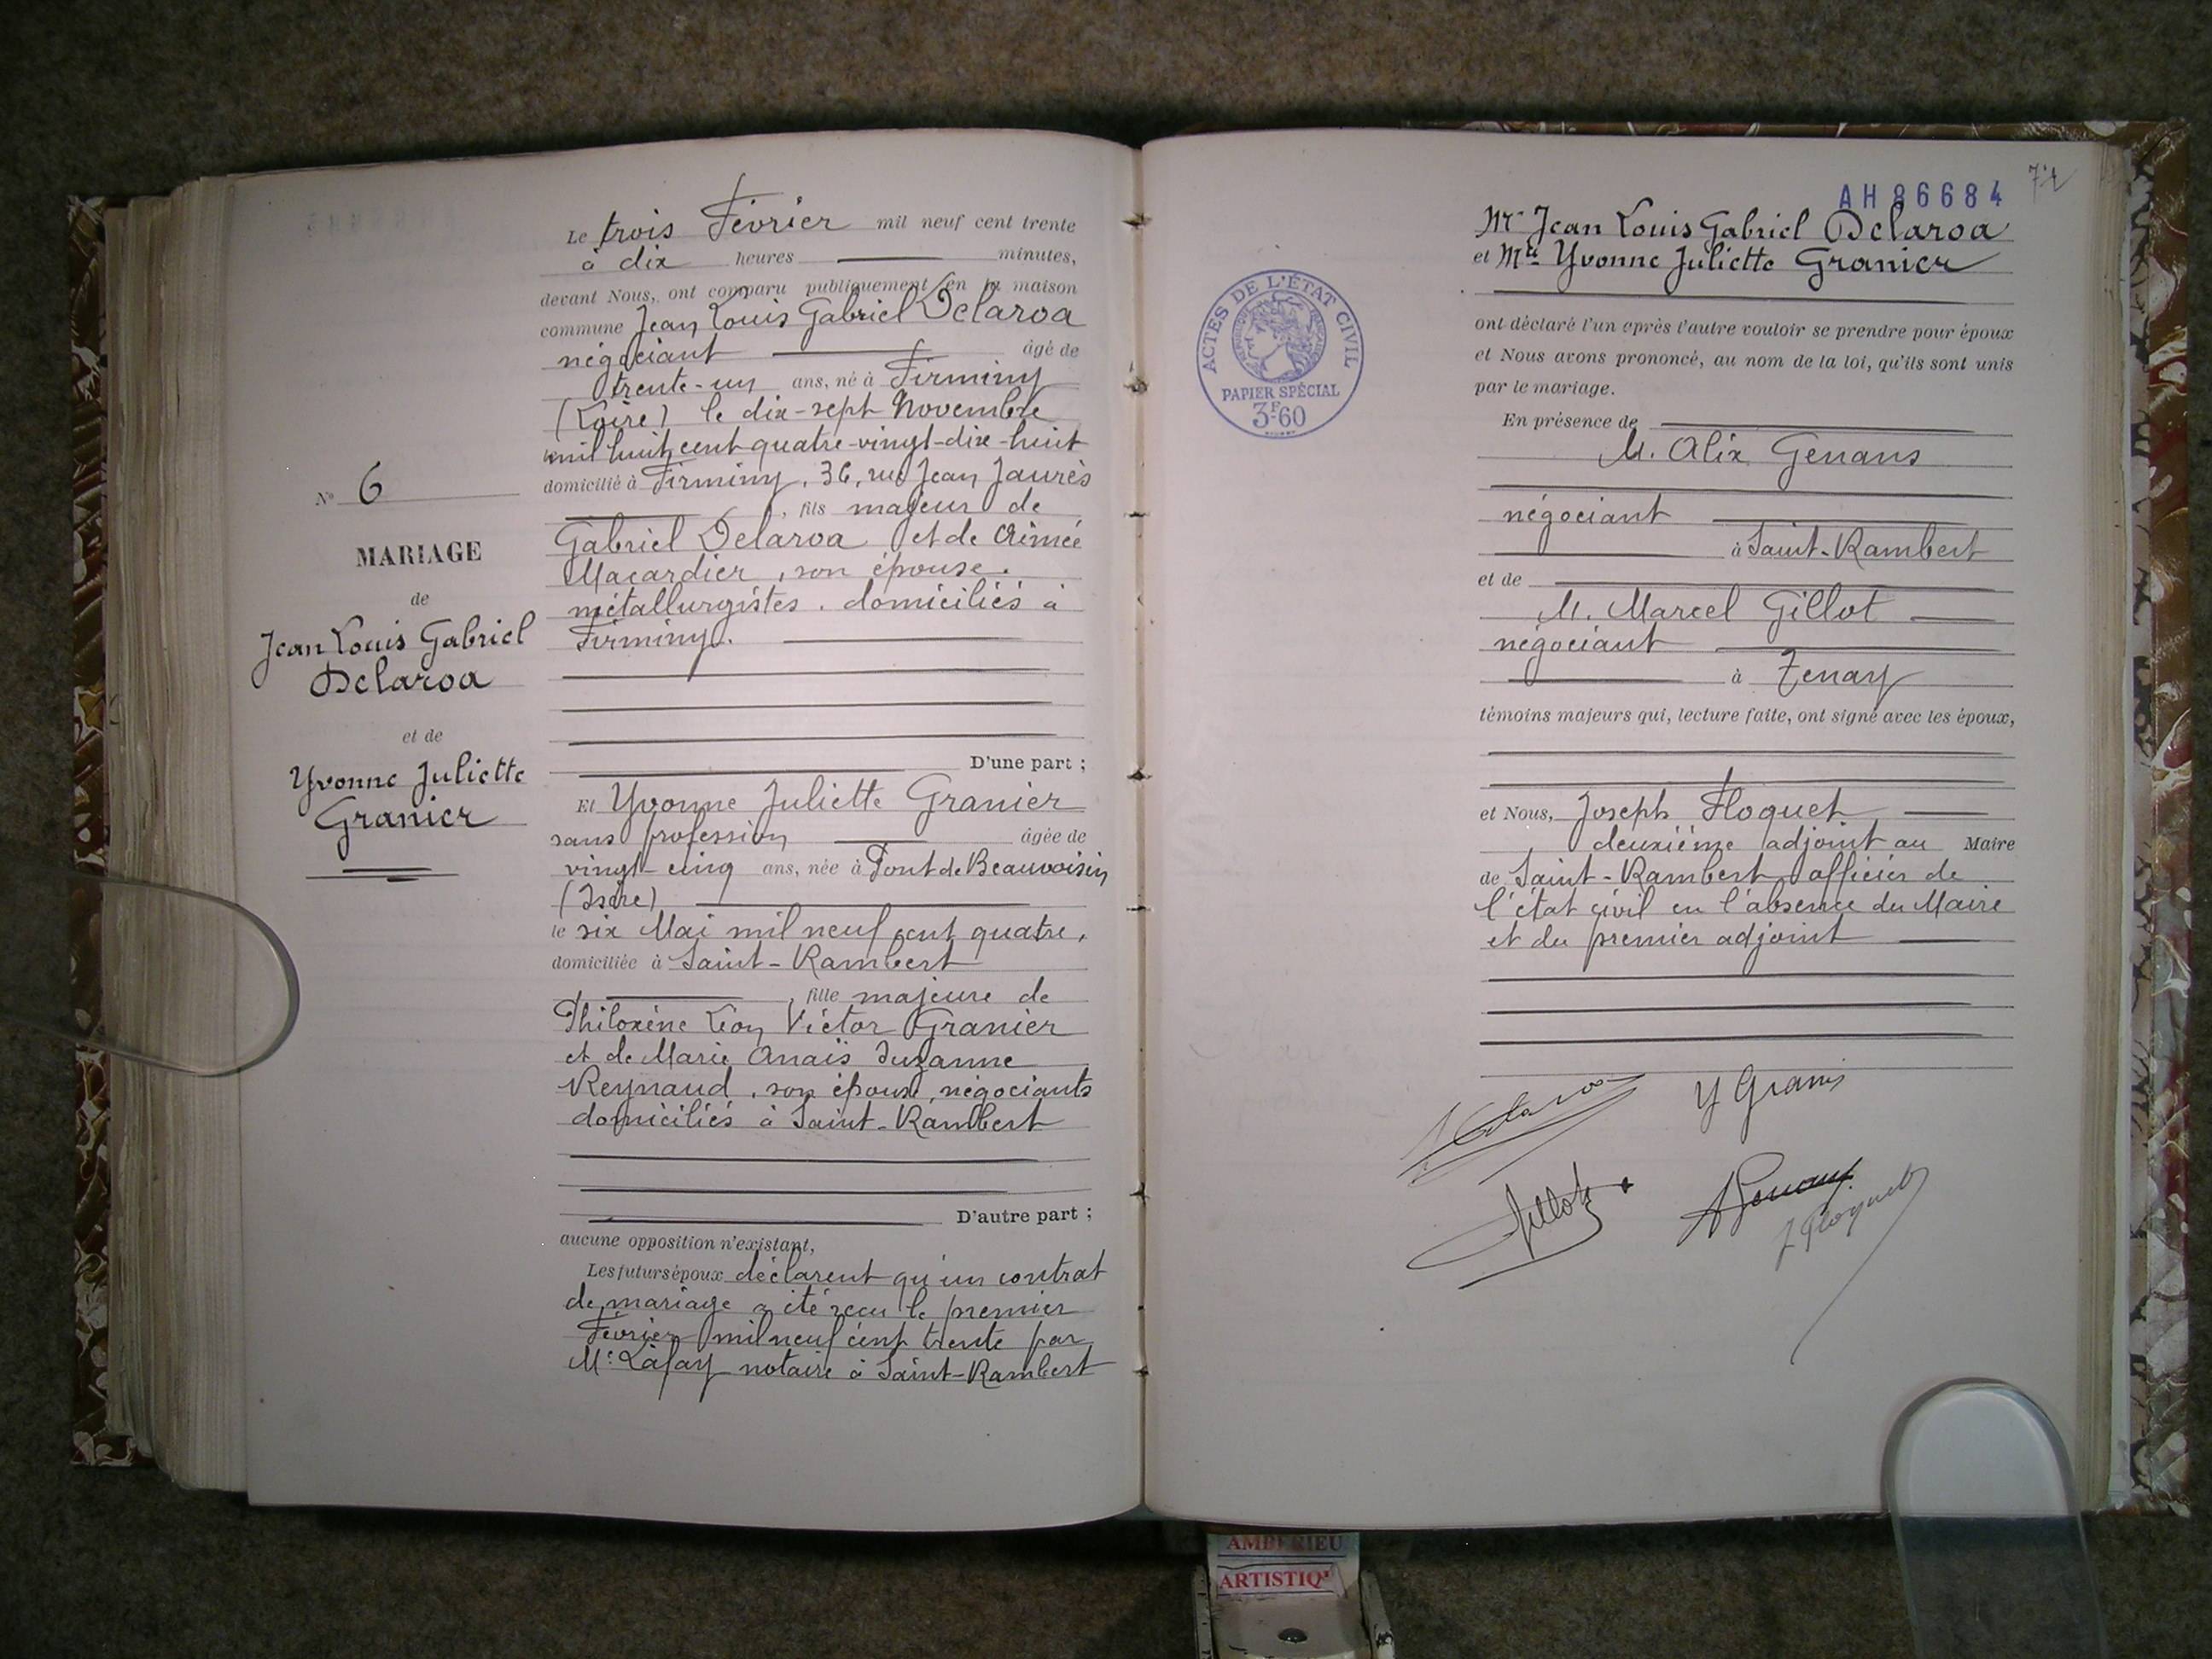 N° 6
MARIAGE
de
Jean Louis Gabriel
Delaroa
et de
Yvonne Juliette
Granier
Le trois Février mil neuf cent trente
à dix heures minutes,
devant Nous, ont comparu publiquement en la maison
commune Jean Louis Gabriel Delaroa
négociant âgé de
trente-un ans, né à Firminy
(Loire) le dix-sept Novembre
mil huit cent quatre-vingt-dix-huit
domicilié à Firminy, 36, rue Jean Jaurès
, fils majeur de
Gabriel Delaroa et de Aimée
Macardier, son épouse.
métallurgistes. domiciliés à
Firminy.
D'une part ;
Et Yvonne Juliette Granier
sans profession âgée de
vingt-cinq ans, née à Pont de Beauvoisin
(Isère)
le six Mai mil neuf cent quatre,
domiciliée à Saint-Rambert
, fille majeure de
Philoxène Léon Victor Granier
et de Marie Anaïs Suzanne
Reynaud, son épouse, négociants
domiciliés à Saint-Rambert
D'autre part ;
aucune opposition n'existant,
Les futurs époux déclarent qu'un contrat
de mariage a été reçu le premier
Février mil neuf cent trente par
Me Lafay notaire à Saint-Rambert
AH 86684
Mr Jean Louis Gabriel Delaroa
et Mlle Yvonne Juliette Granier
ACTES DE L'ÉTAT CIVIL
PAPIER SPÉCIAL
3F60
ont déclaré l'un après l'autre vouloir se prendre pour époux
et Nous avons prononcé, au nom de la loi, qu'ils sont unis
par le mariage.
En présence de
M. Alix Genans
négociant
à Saint-Rambert
et de
M. Marcel Gillot
négociant
à Tenay
témoins majeurs qui, lecture faite, ont signé avec les époux,
et Nous, Joseph Floquet
deuxième adjoint au Maire
de Saint-Rambert officier de
l'état civil en l'absence du Maire
et du premier adjoint
Delaroa Y Granier
Gillot A Genans
J Floquet
AMBERIEU
ARTISTIQ